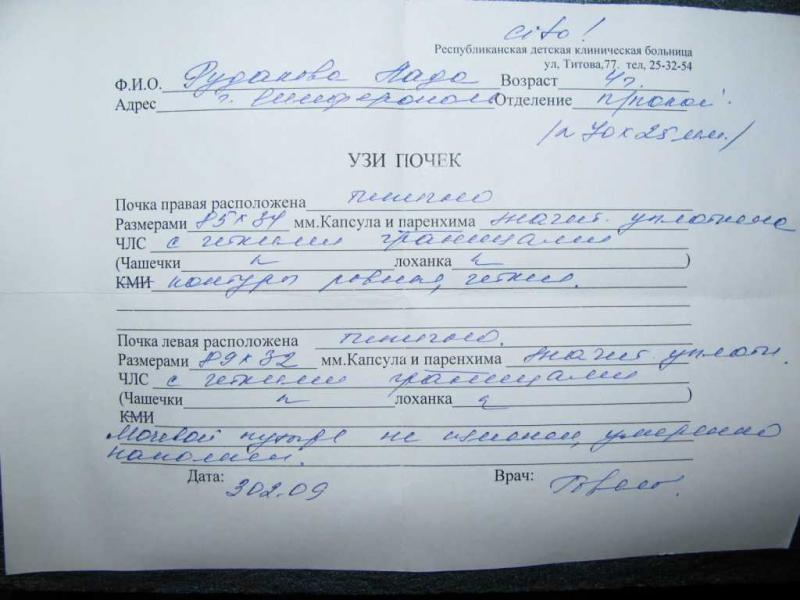 cito!
Республиканская детская клиническая больница
ул, Титова,77. тел, 25-32-54
Ф.И.О. Рудакова Лада Возраст 4г.
Адрес г. Симферополь Отделение п/покой
/n 70 х 25 мм./
УЗИ ПОЧЕК
Почка правая расположена типично
Размерами 85 х 34 мм.Капсула и паренхима значит. уплотнена
ЧЛС с четкими границами
(Чашечки n лоханка n )
КМИ контуры ровные, четкие.
Почка левая расположена типично.
Размерами 89 х 32 мм.Капсула и паренхима значит. уплотн.
ЧЛС с четкими границами
(Чашечки n лоханка n )
КМИ
Мочевой пузырь не изменен, умеренно
наполнен.
Дата: Врач:
302.09